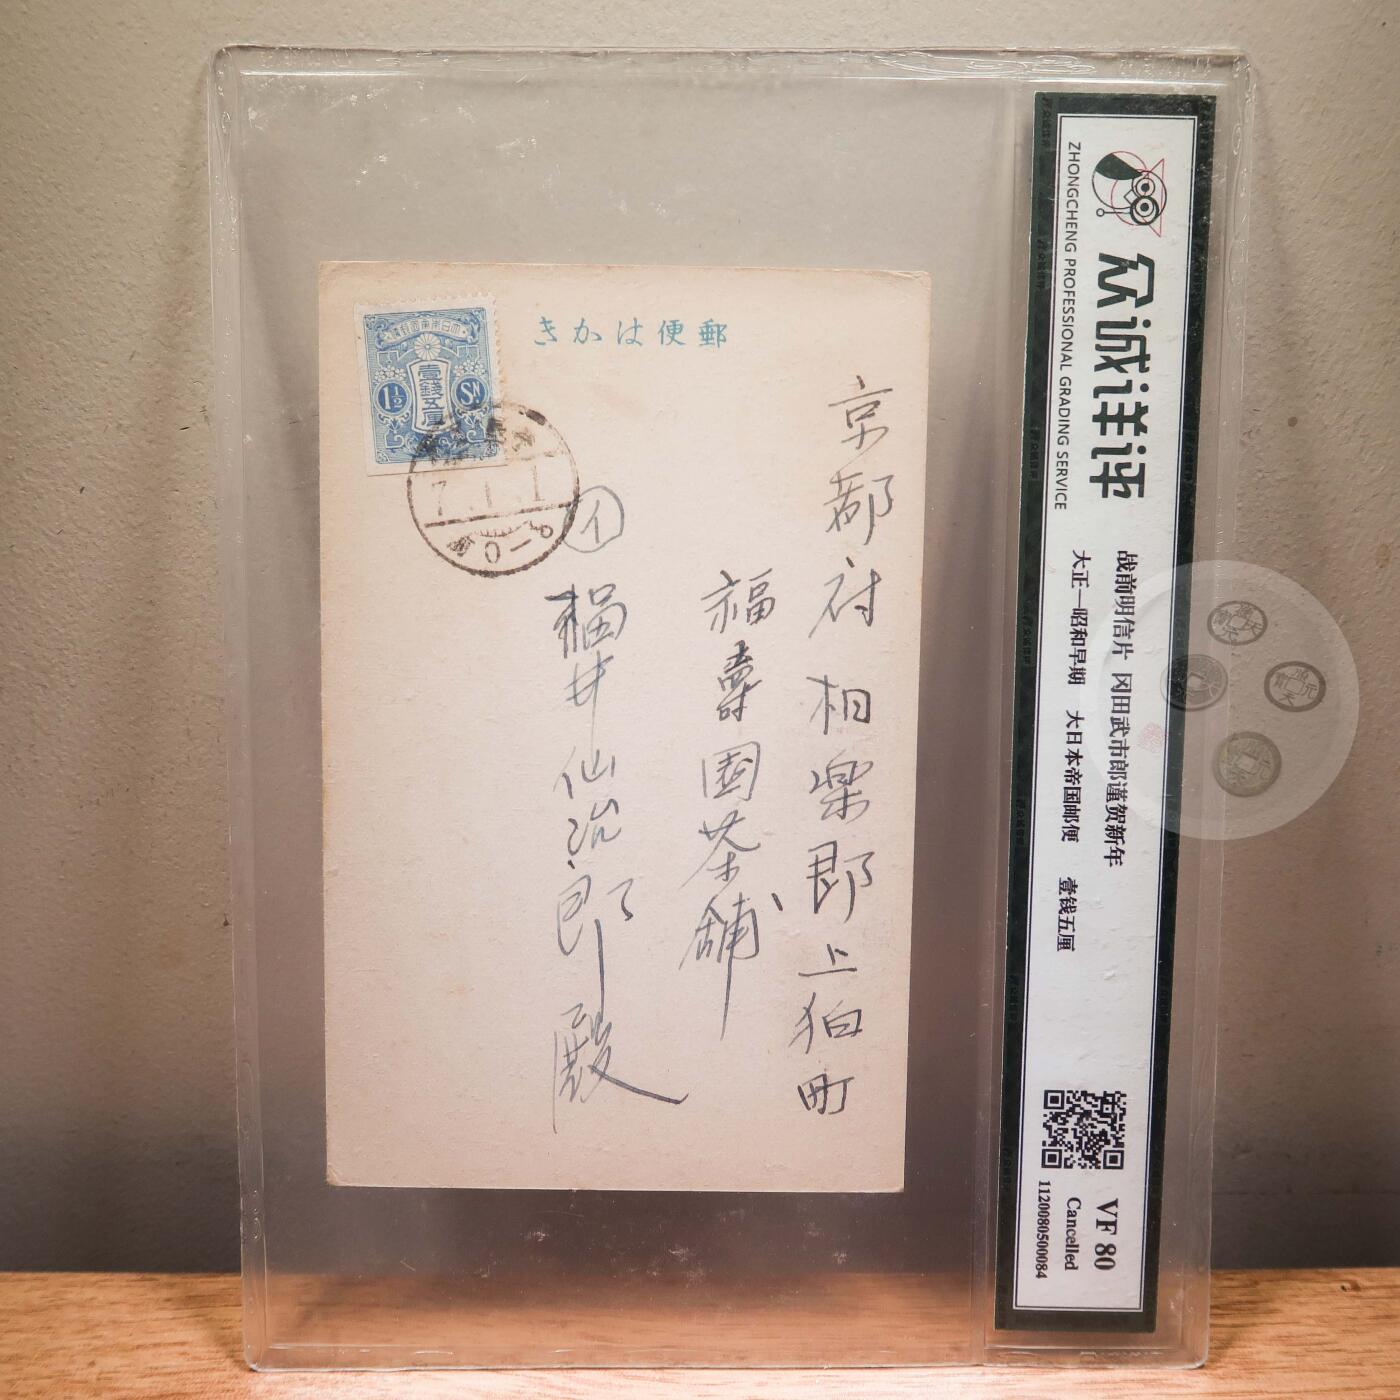 郵便はかき
大日本帝國郵便
壹錢五厘
1½
Sn
7.1.1
0-9
京都府相楽郡上狛町
福壽園茶舖
イ
福井仙治郎殿
众诚评评
ZHONGCHENG PROFESSIONAL GRADING SERVICE
战前明信片 冈田武市郎谨贺新年
大正—昭和早期 大日本帝国邮便 壹钱五厘
VF 80
Cancelled
1120080500084